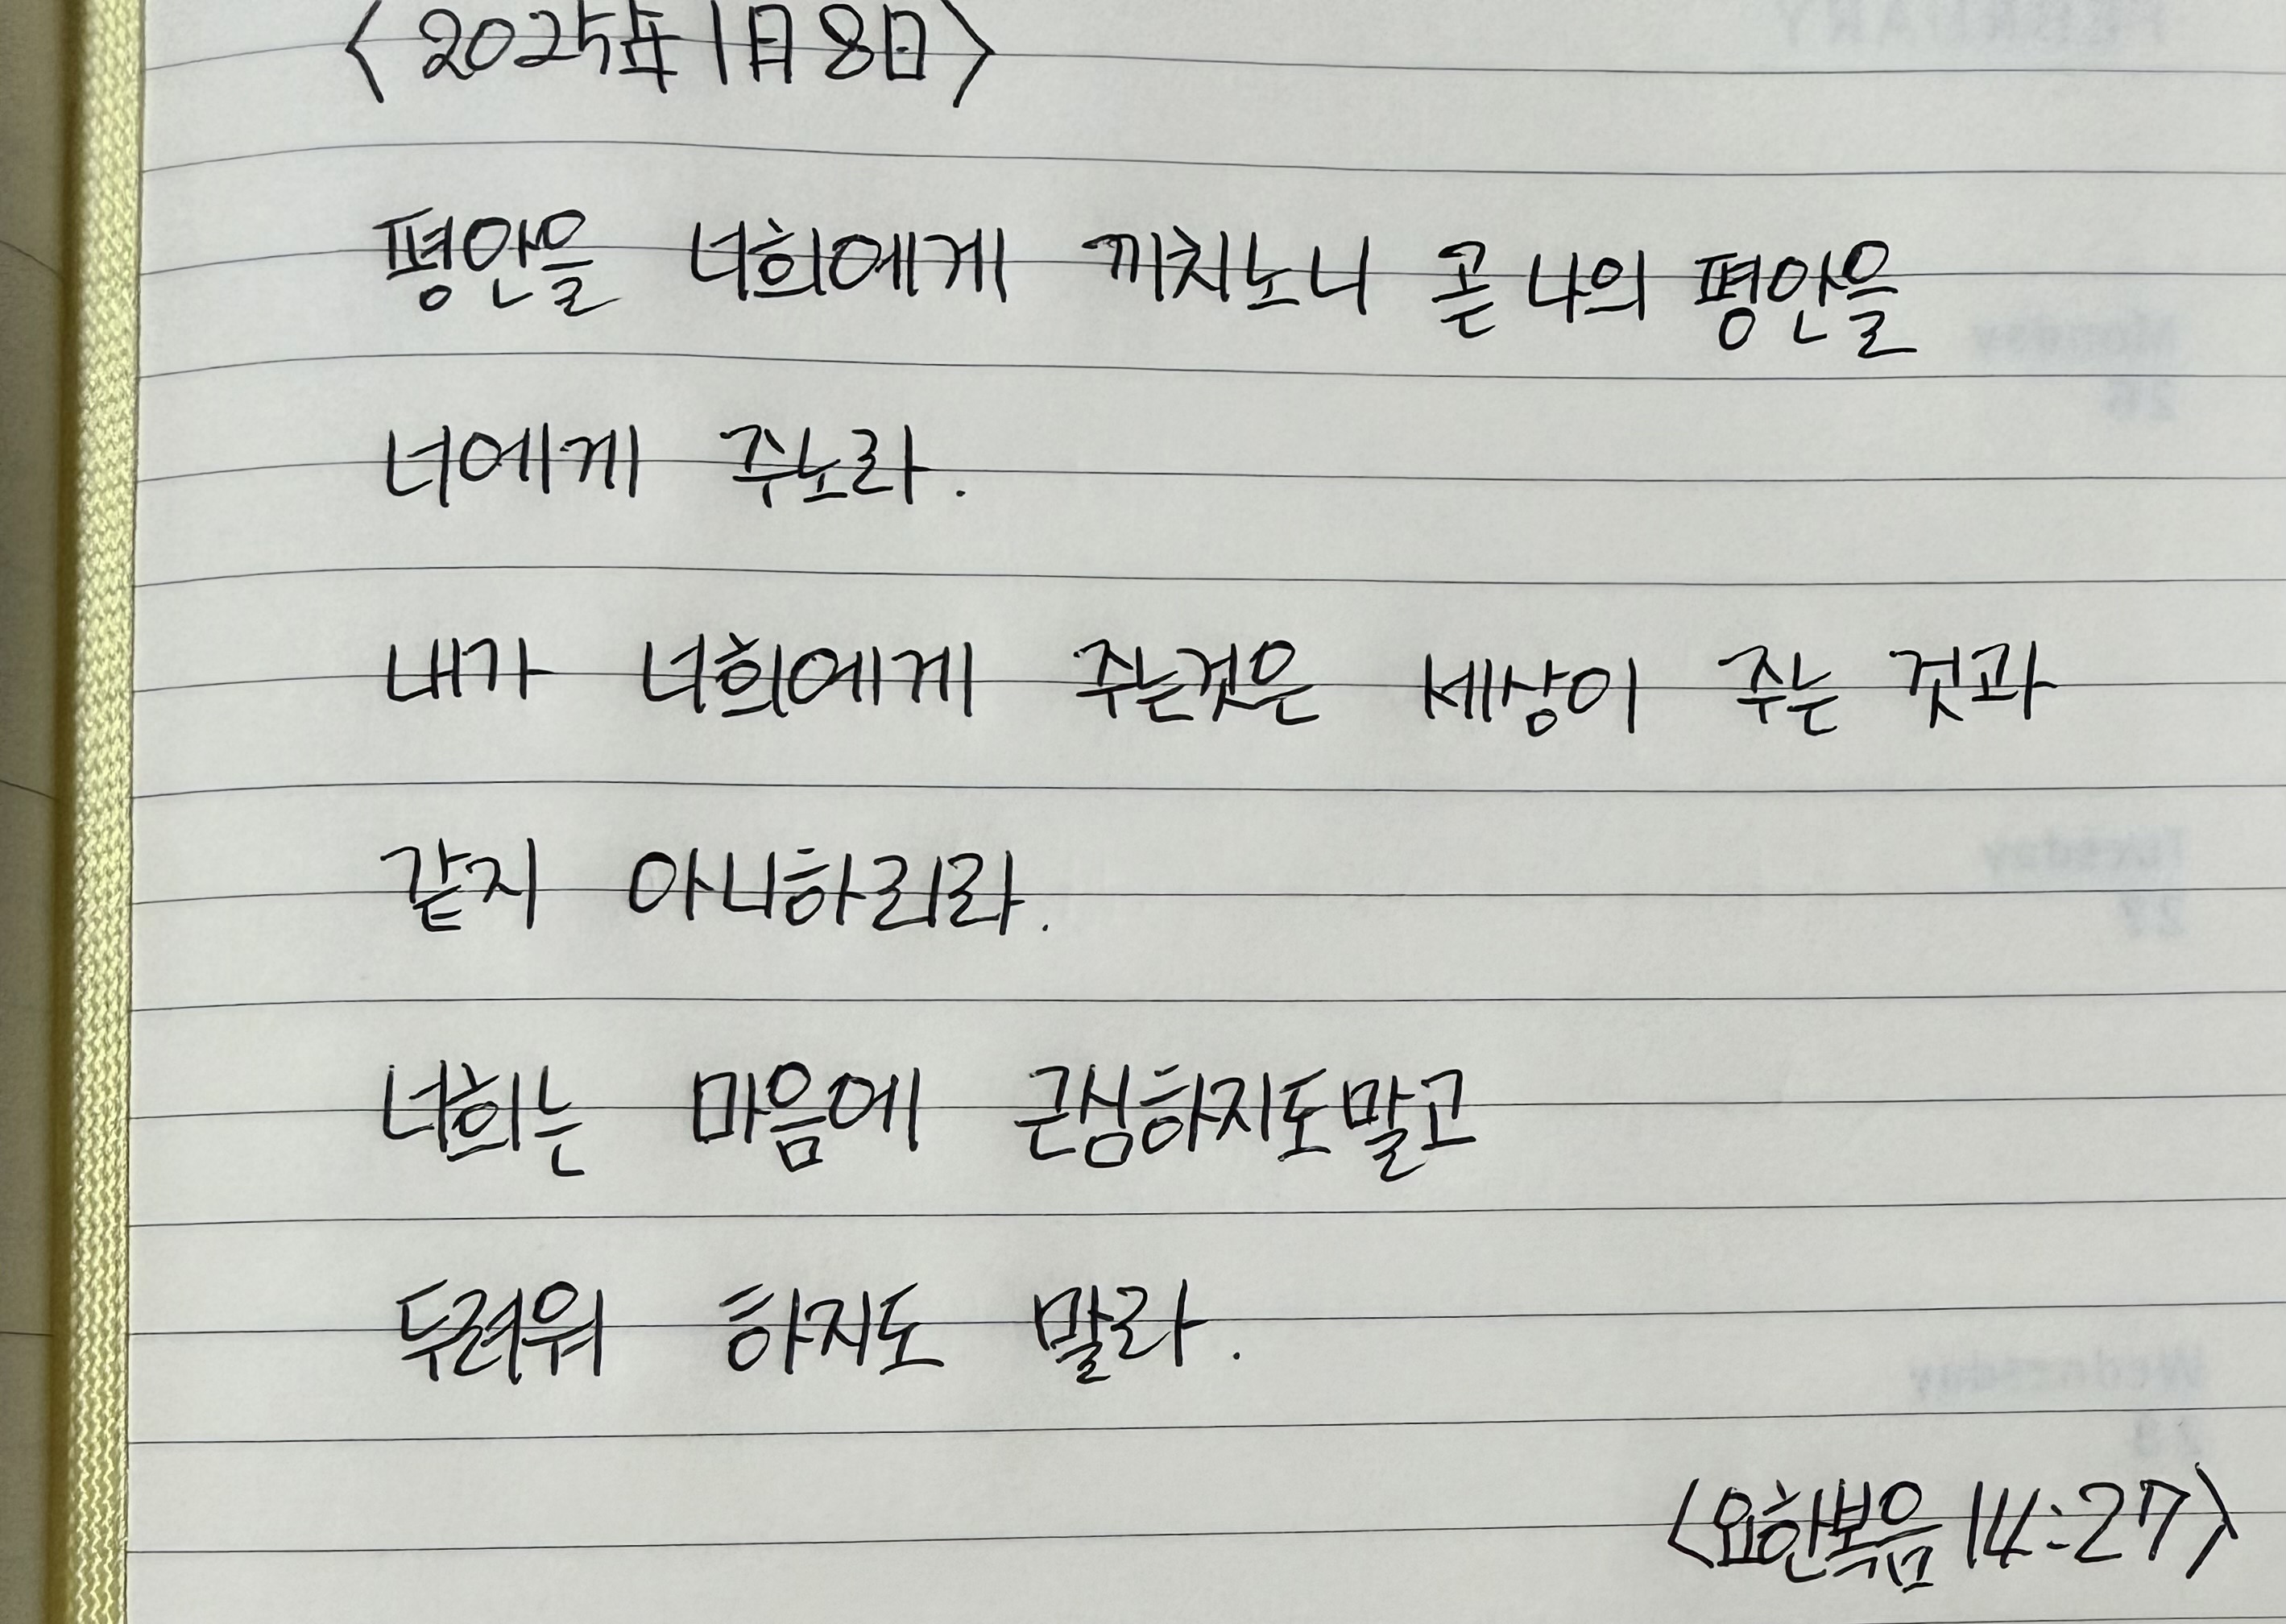 〈2025年1月8日〉
평안을 너희에게 끼치노니 곧 나의 평안을
너에게 주노라.
내가 너희에게 주는것은 세상이 주는 것과
같지 아니하리라.
너희는 마음에 근심하지도말고
두려워 하지도 말라.
〈요한복음 14:27〉
FEBRUARY
Monday
26
Tuesday
27
Wednesday